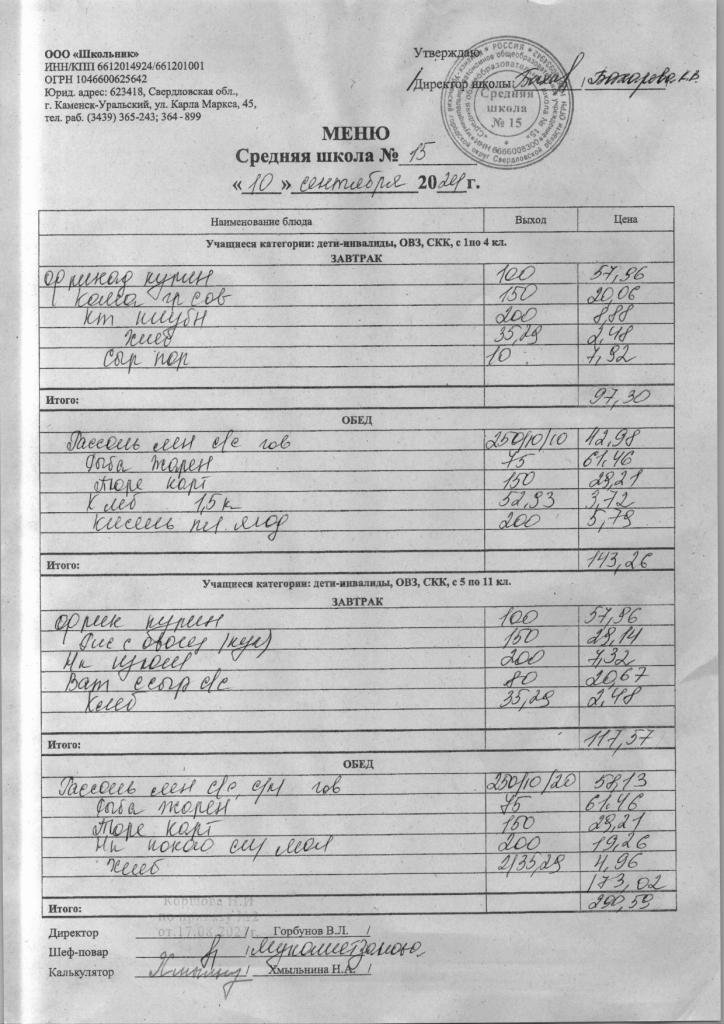 ООО «Школьник»
ИНН/КПП 6612014924/661201001
ОГРН 1046600625642
Юрид. адрес: 623418, Свердловская обл.,
г. Каменск-Уральский, ул. Карла Маркса, 45,
тел. раб. (3439) 365-243; 364 - 899
Утверждаю
Директор школы
РОССИЯ
Средняя
школа
№ 15
МЕНЮ
Средняя школа № 15
« 10 » сентября 2024 г.
Наименование блюда Выход Цена
Учащиеся категории: дети-инвалиды, ОВЗ, СКК, с 1по 4 кл.
ЗАВТРАК
фрикад курин 100 57,96
Каша гр с ов 150 20,06
200 8,88
Хлеб 35,29 2,48
Сыр пор 10 7,92
Итого: 97,30
ОБЕД
Рассоль лен с/с гов 250/10/10 42,98
Рыба жарен 75 61,46
Пюре карт 150 29,21
Хлеб 1,5 к 52,93 3,72
Кисель пл. ягод 200 5,79
Итого: 143,26
Учащиеся категории: дети-инвалиды, ОВЗ, СКК, с 5 по 11 кл.
ЗАВТРАК
фрик курин 100 57,96
Рис с овощ (кук) 150 29,14
Нп изюм 200 7,32
Ват с сыр с/с 80 20,67
Хлеб 35,29 2,48
Итого: 117,57
ОБЕД
Рассоль лен с/с, с/м гов 250/10/20 58,13
Рыба жарен 75 61.46
Пюре карт 150 29,21
Нп какао сгущ мол 200 19,26
Хлеб 2/35,29 4,96
173,02
Итого: 290,59
Коршова Н.И
по приказу
от 17.08.202 г.
Директор / Горбунов В.Л. /
Шеф-повар /
Калькулятор / Хмыльнина Н.А. /